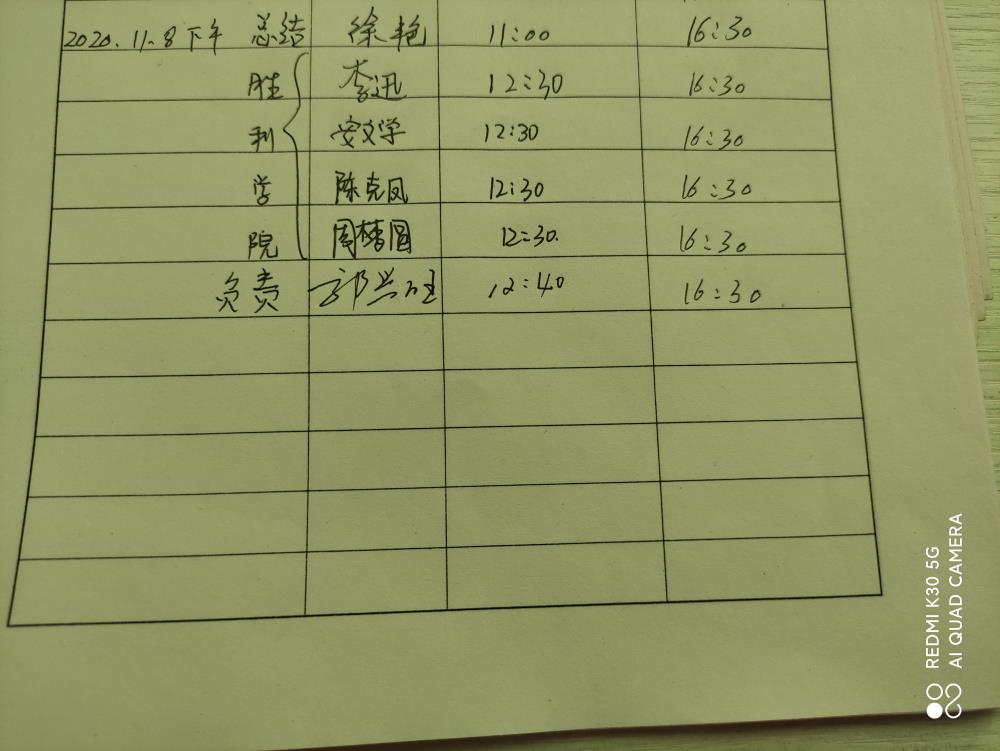 2020.11.8下午 总结 徐艳 11:00 16:30
胜 李迅 12:30 16:30
利 安文学 12:30 16:30
学 陈克凤 12:30 16:30
院 周梦圆 12:30. 16:30
负责 12:40 16:30
REDMI K30 5G
AI QUAD CAMERA